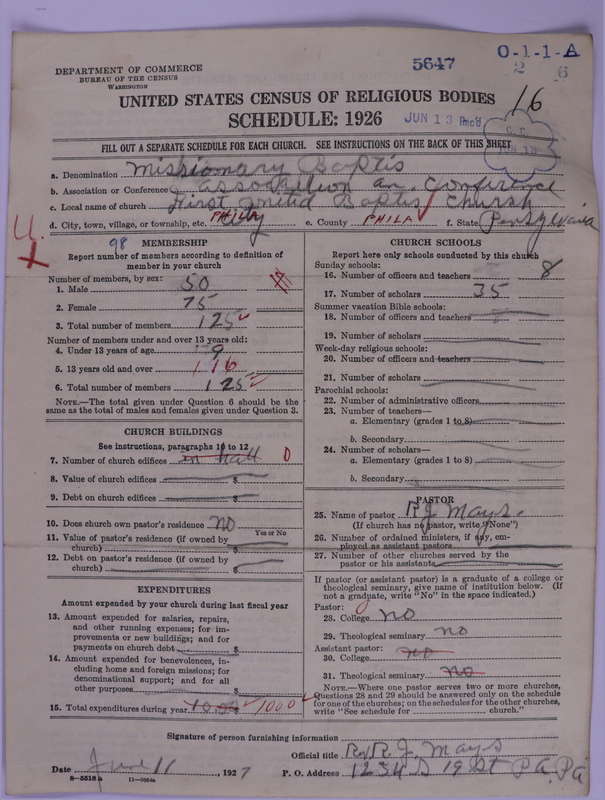 5647
O-1-1-A
2 6
DEPARTMENT OF COMMERCE
BUREAU OF THE CENSUS
WASHINGTON
UNITED STATES CENSUS OF RELIGIOUS BODIES
16
SCHEDULE: 1926
JUN 13 Rec'd
FILL OUT A SEPARATE SCHEDULE FOR EACH CHURCH. SEE INSTRUCTIONS ON THE BACK OF THIS SHEET
a. Denomination Missionary Baptis
b. Association or Conference association an. Conference
c. Local name of church First United Baptist Church
d. City, town, village, or township, etc. PHILA City e. County PHILA f. State Pensylvania
98
MEMBERSHIP
Report number of members according to definition of member in your church
Number of members, by sex:
1. Male 50
2. Female 75
3. Total number of members 125
Number of members under and over 13 years old:
4. Under 13 years of age 9
5. 13 years old and over 116
6. Total number of members 125
NOTE.—The total given under Question 6 should be the
same as the total of males and females given under Question 3.
CHURCH BUILDINGS
See instructions, paragraphs 10 to 12
7. Number of church edifices in hall 0
8. Value of church edifices $
9. Debt on church edifices $
10. Does church own pastor's residence no
Yes or No
11. Value of pastor's residence (if owned by
church) $
12. Debt on pastor's residence (if owned by
church) $
EXPENDITURES
Amount expended by your church during last fiscal year
13. Amount expended for salaries, repairs,
and other running expenses; for im-
provements or new buildings; and for
payments on church debt $
14. Amount expended for benevolences, in-
cluding home and foreign missions; for
denominational support; and for all
other purposes $
15. Total expenditures during year 1000 1000
CHURCH SCHOOLS
Report here only schools conducted by this church
Sunday schools:
16. Number of officers and teachers 8
17. Number of scholars 35
Summer vacation Bible schools:
18. Number of officers and teachers
19. Number of scholars
Week-day religious schools:
20. Number of officers and teachers
21. Number of scholars
Parochial schools:
22. Number of administrative officers
23. Number of teachers—
a. Elementary (grades 1 to 8)
b. Secondary
24. Number of scholars—
a. Elementary (grades 1 to 8)
b. Secondary
PASTOR
25. Name of pastor R. J. Mays.
(If church has no pastor, write "None")
26. Number of ordained ministers, if any, em-
ployed as assistant pastors
27. Number of other churches served by the
pastor or his assistants
If pastor (or assistant pastor) is a graduate of a college or
theological seminary, give name of institution below. (If
not a graduate, write "No" in the space indicated.)
Pastor:
28. College no
29. Theological seminary no
Assistant pastor:
30. College no
31. Theological seminary no
NOTE.—Where one pastor serves two or more churches,
Questions 28 and 29 should be answered only on the schedule
for one of the churches; on the schedules for the other churches,
write "See schedule for church."
Signature of person furnishing information
Official title Rev R. J. Mays
Date June 11, 1927 P. O. Address 1234 S 19 St P A. PA
8—5518 a 11—9204a